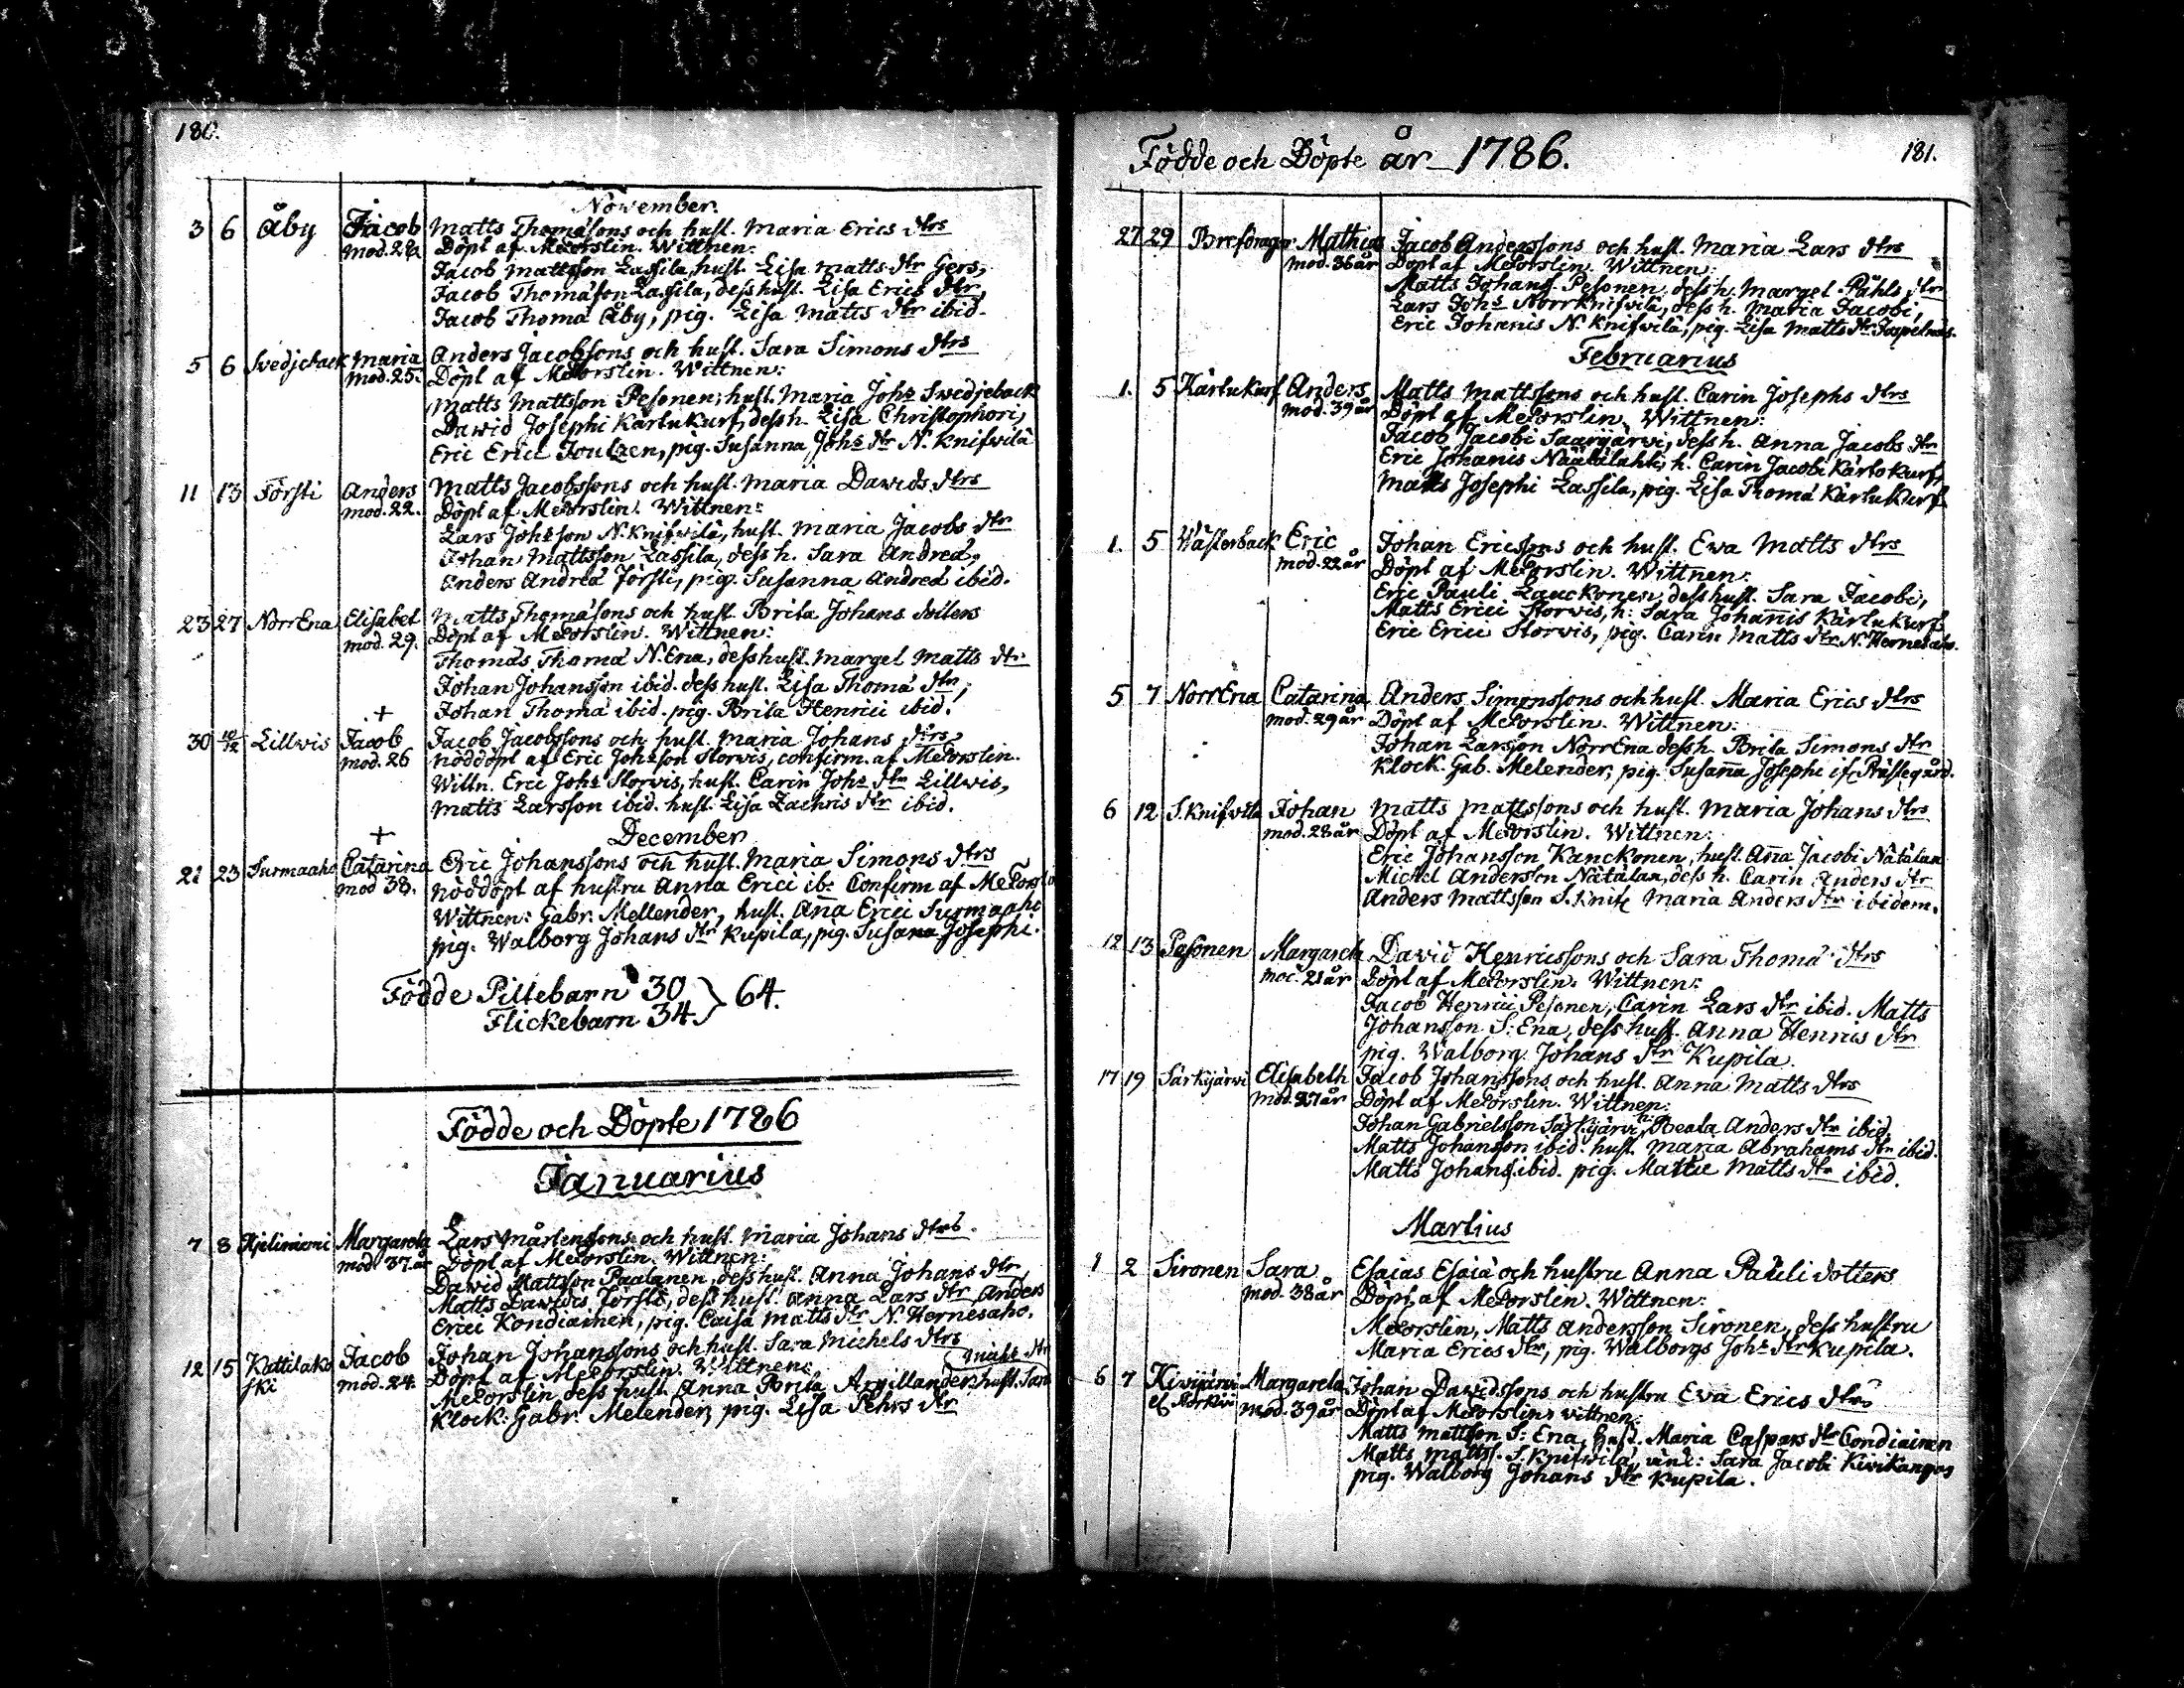 180.
November.
3 6 Åby Jacob Matts Thomæsons och hust. Maria Erics dtrs
mod. 22 Döpt af MePorslin. Wittnen:
Jacob Mattsson Lassila, hust. Lisa Matts dtr Gers,
Jacob Thomæson Lassila, dess hust. Lisa Erics dtr,
Jacob Thomæ Åby, pig. Lisa Matts dtr ibid.
5 6 Svedjeback Maria Anders Jacobssons och hust. Sara Simons dtrs
mod. 25. Döpt af MePorslin. Wittnen:
Matts Mattsson Pesonen, hust. Maria Johs Swedjeback
Dawid Josephi Kärtukurf, dess h. Lisa Christophori,
Eric Erici Joutzen, pig. Susanna Johs dtr N. Knifwilä
11 13 Försti Anders Matts Jacobssons och hust. Maria Dawids dtrs
mod. 22. Döpt af MePorslin. Wittnen:
Lars Johsson N. Knifwilä, hust. Maria Jacobs dtr
Johan Mattsson Lassila, dess h. Sara Andreæ,
Anders Andreæ Försti, pig. Susanna Andreæ ibid.
23 27 NorrEna Elisabet Matts Thomæsons och hust. Brita Johans dotters
mod. 29. Döpt af MePorslin. Wittnen:
Thomas Thomæ N. Ena, dess hust. Marget Matts dtr
Johan Johansson ibid. dess hust. Lisa Thomæ dtr,
+ Johan Thomæ ibid. pig. Brita Henrici ibid.
30 10/12 Lillwis Jacob Jacob Jacobssons och hust. Maria Johans dtrs,
mod. 26 nöddöpt af Eric Johsson Storwis, confirm. af MePorslin.
Wittn. Eric Johs Storwis, hust. Carin Johs dtr Lillwis,
Matts Larsson ibid. hust. Lisa Zachris dtr ibid.
+ December
21 23 Surmaaho Catarina Eric Johanssons och hust. Maria Simons dtrs
mod 38. nöddöpt af hustru Anna Erici ib: Confirm af MePorslin
Wittnen: Gabr. Mellender, hust. Ana Erici Surmaaho
pig. Walborg Johans dtr Kupila, pig. Susana Josephi.
Födde Piltebarn 30 } 64.
Flickebarn 34
Födde och Döpte 1786
Januarius
7 8 Hjelmniemi Margareta Lars Mårtenssons och hust. Maria Johans dtrs.
mod. 37. år Döpt af MePorslin. Wittnen:
David Mattsson Paalanen, dess hust. Anna Johans dtr,
Matts Dawidis Försti, dess hust. Anna Lars dtr Anders
Erici Kondiainen, pig. Caisa Matts dtr N. Hernesaho.
12 15 Kattilako Jacob Johan Johanssons och hust. Sara Michels dtrs
ski mod. 24. Döpt af MePorslin. Wittnen: Math. dtr
MePorslin, dess hust. Anna Brita Argillander, hust. Sara
Klock. Gabr. Melender, pig. Lisa Pehrs dtr
Födde och Döpte år 1786.
181.
27 29 Mathias Jacob Anderssons och hust. Maria Lars dtrs
mod. 36 år Döpt af MePorslin. Wittnen:
Matts Johans. Pesonen, dess h. Marget Påhls dtr
Lars Johs NorrKnifwilä, dess h. Maria Jacobi,
Eric Johanis N. Knifwilä, pig. Lisa Matts dtr
Februarius
1. 5 Kärtukurf Anders Matts Mattssons och hust. Carin Josephs dtrs
mod. 39 år Döpt af MePorslin. Wittnen:
Jacob Jacobi Saarijärwi, dess h. Anna Jacobs dtr
Eric Johanis Näätälahti, h. Carin Jacobi Kärtokurf,
Matts Josephi Lassila, pig. Lisa Thomæ Kärtukurf
1. 5 Wästerback Eric Johan Ericssons och hust. Ewa Matts dtrs
mod. 22 år Döpt af MePorslin. Wittnen:
Eric Pauli Lauckonen, dess hust. Sara Jacobi,
Matts Erici Storwis, h: Sara Johannis Kärtukurf
Eric Erici Storwis, pig. Carin Matts dtr N. Hernesaho.
5 7 NorrEna Catarina Anders Simonssons och hust. Maria Erics dtrs
mod. 29 år Döpt af MePorslin. Wittnen:
Johan Larsson NorrEna dess h. Brita Simons dtr
Klock. Gab. Melender, pig. Susana Josephi if. Prästegård.
6 12 S. Knifwilä Johan Matts Mattssons och hust. Maria Johans dtrs
mod. 28 år Döpt af MePorslin. Wittnen:
Eric Johansson Kanckonen, hust. Ana Jacobi Nätälan
Michel Andersson Nätälan, dess h. Carin Anders dtr
Anders Mattsson S. Knif. Maria Anders dtr ibidem.
12 13 Pesonen Margareta David Henricssons och Sara Thomæ dtrs
mod. 21 år Döpt af MePorslin. Wittnen:
Jacob Henrici Pesonen, Carin Lars dtr ibid. Matts
Johansson S. Ena, dess hust. Anna Henrics dtr
pig. Walborg Johans dtr Kupila.
17 19 Särkijärwi Elisabeth Jacob Johanssons och hust. Anna Matts dtrs
mod. 27 år Döpt af MePorslin. Wittnen:
Johan Gabrielsson Särkijärwi, h. Beata Anders dtr ibid
Matts Johansson ibid. hust. Maria Abrahams dtr ibid.
Matts Johans. ibid. pig. Matts dtr ibid.
Martius
1 2 Sironen Sara Esaias Esaiæ och hustru Anna Pauli dotters
mod. 38 år Döpt af MePorslin. Wittnen:
MePorslin, Matts Andersson Sironen, dess hustru
Maria Erics dtr, pig. Walborg Johs dtr Kupila.
6 7 Kivijärwi Margareta Johan Dawidssons och hustru Eva Erics dtrs
mod. 39 år Döpt af MePorslin, wittnen:
Matts Mattsson S: Ena, hust. Maria Caspars dtr Condiainen
Matts Matts. S. Knifwilä, Sara Jacobi Kivikangas
pig. Walborg Johans dtr Kupila.